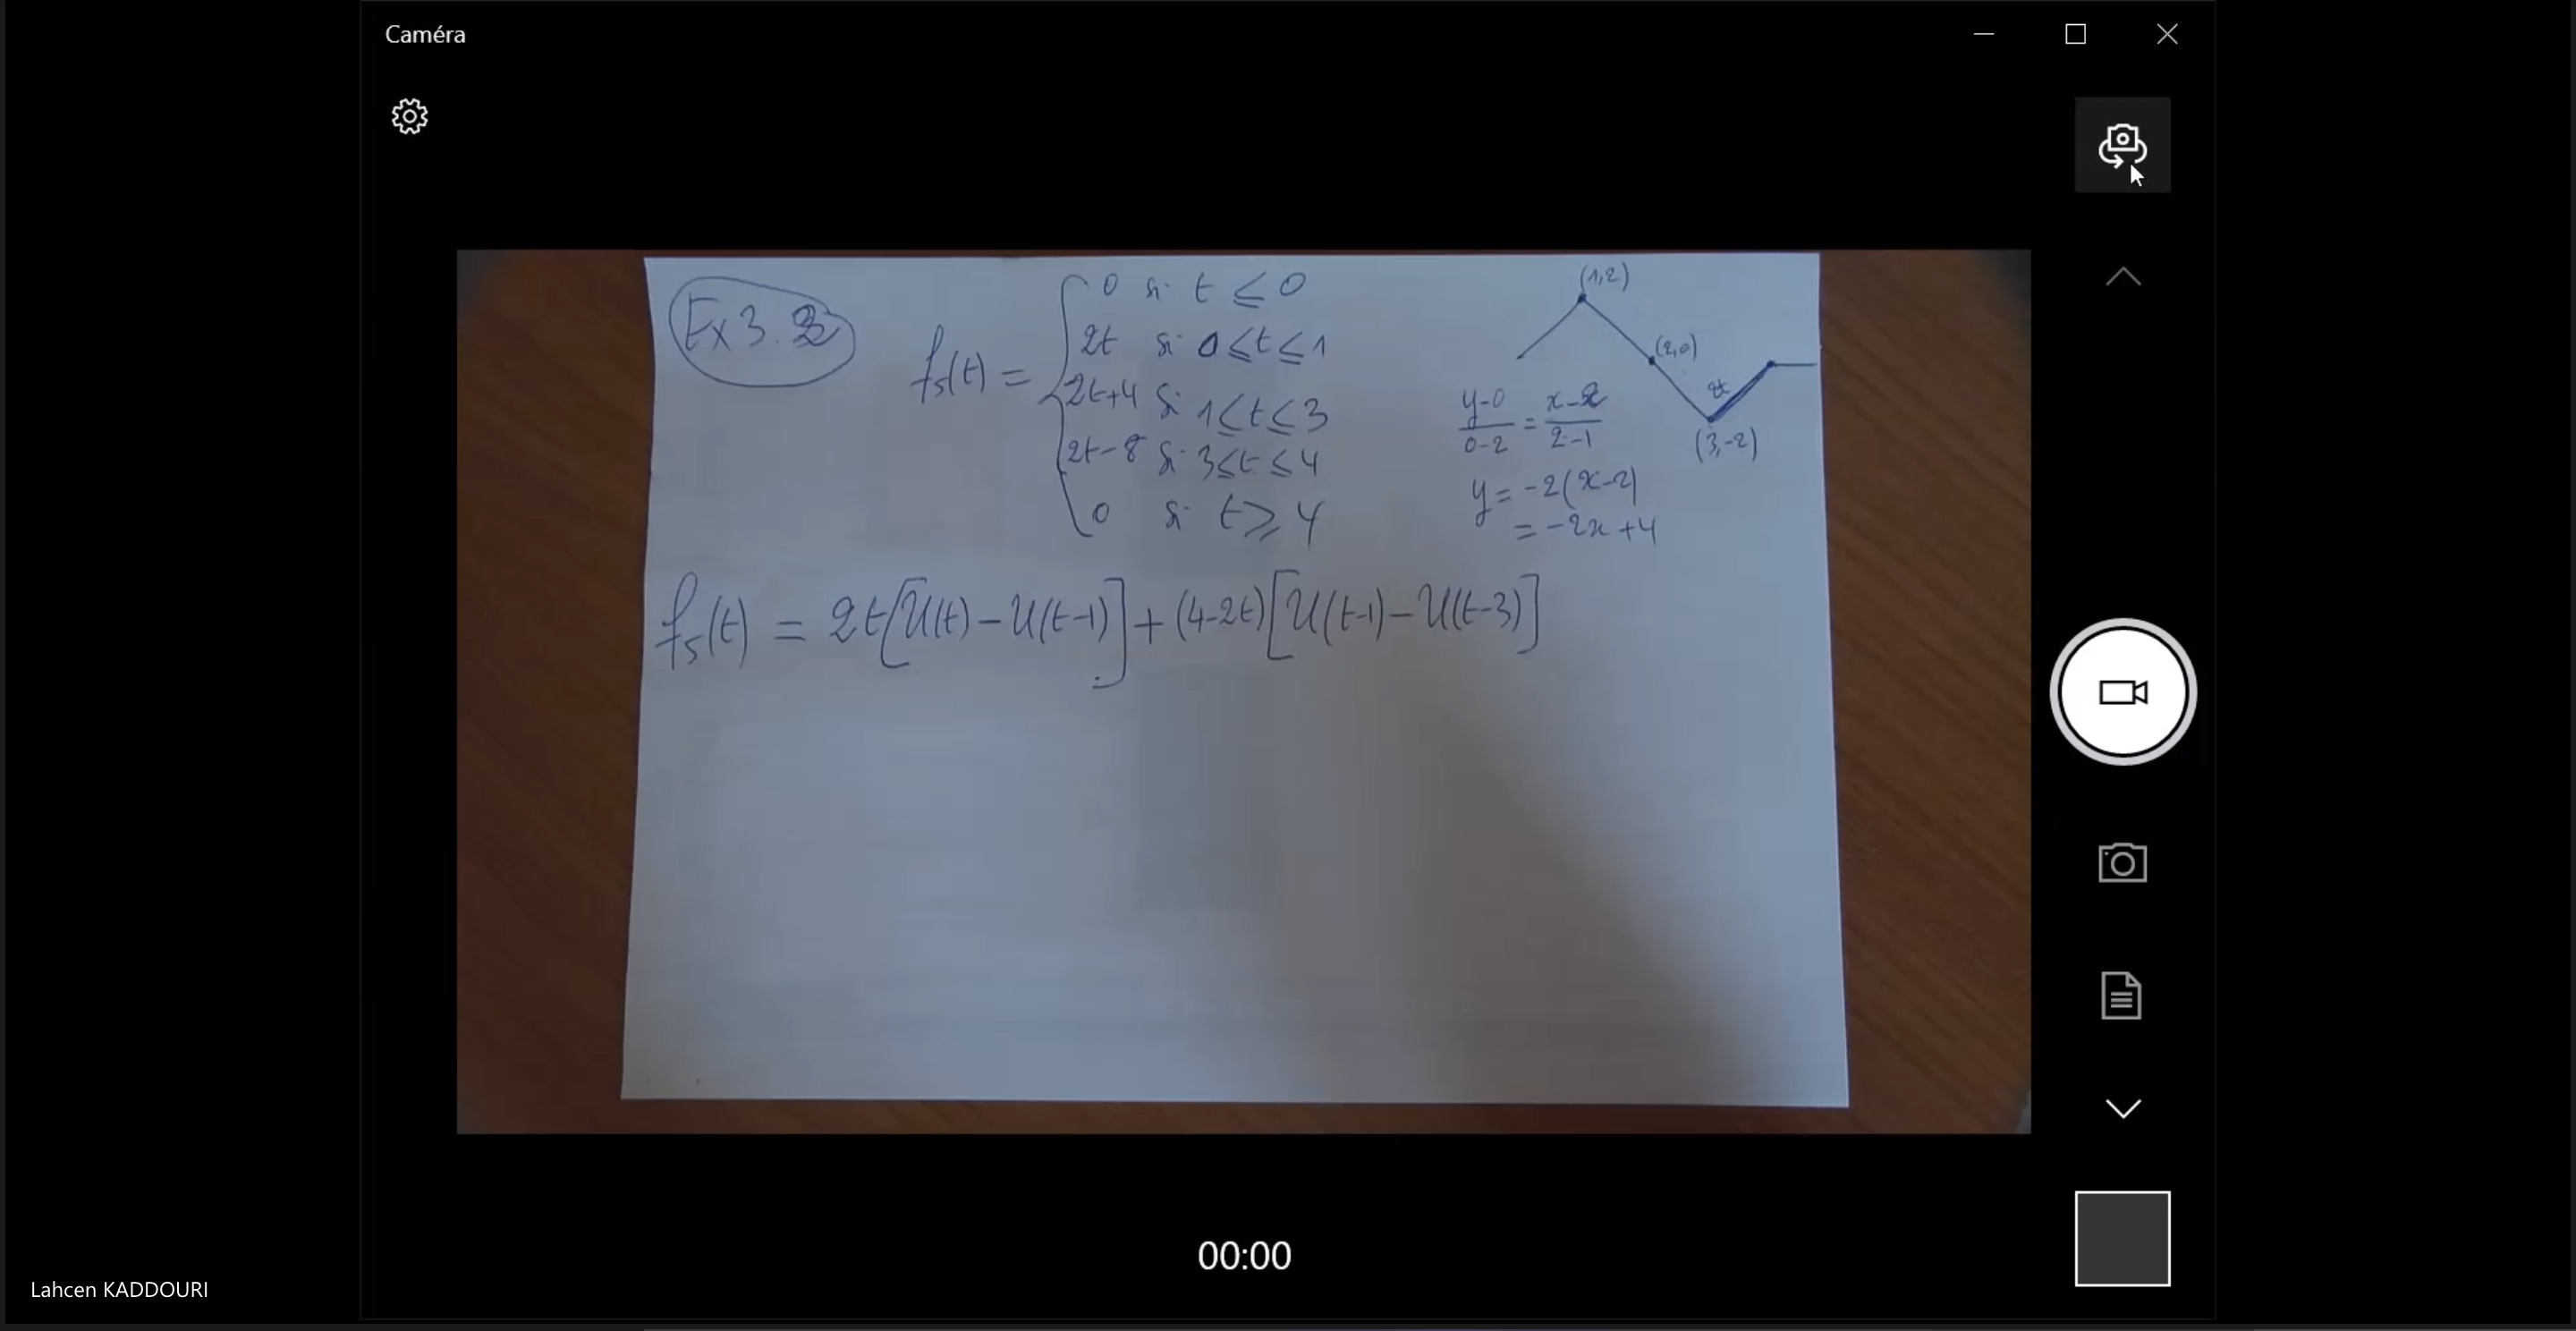 Caméra
Ex 3.3
f₅(t) =
0 si t ≤ 0
2t si 0 ≤ t ≤ 1
2t+4 si 1 ≤ t ≤ 3
2t-8 si 3 ≤ t ≤ 4
0 si t ≥ 4
(1,2)
(2,0)
2t
(3,-2)
y-0/0-2 = x-2/2-1
y = -2(x-2)
= -2x+4
f₅(t) = 2t[U(t)-U(t-1)]+(4-2t)[U(t-1)-U(t-3)]
00:00
Lahcen KADDOURI